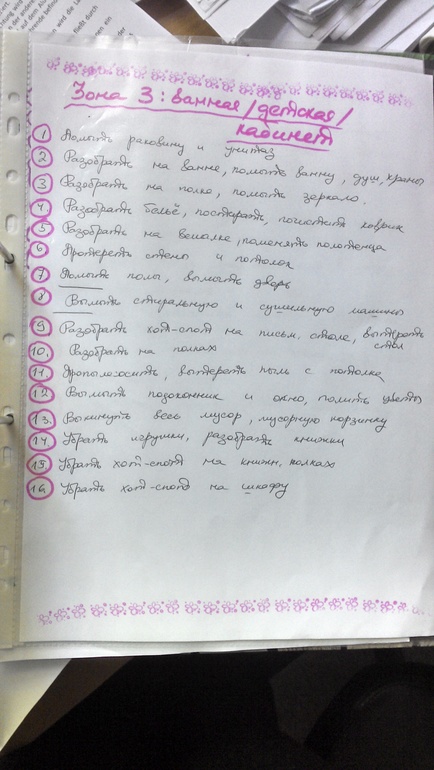 Зона 3: ванная/детская/
кабинет
1 Помыть раковину и унитаз
2 Разобрать на ванне, помыть ванну, душ, краны
3 Разобрать на полке, помыть зеркало.
4. Разобрать бельё, постирать, почистить коврик
5 Разобрать на вешалке, поменять полотенца
6 Протереть стены и потолок
7 Помыть полы, вымыть дверь
8 Вымыть стиральную и сушильную машины
9 Разобрать хот-спот на письм. столе, вытереть
стол
10. Разобрать на полках
11. Пропылесосить, вытереть пыль с потолка
12 Вымыть подоконник и окно, полить цветы
13. Выкинуть весь мусор, мусорную корзинку
14. Убрать игрушки, разобрать книжки
15 Убрать хот-спот на книжн. полках
16 Убрать хот-спот на шкафу